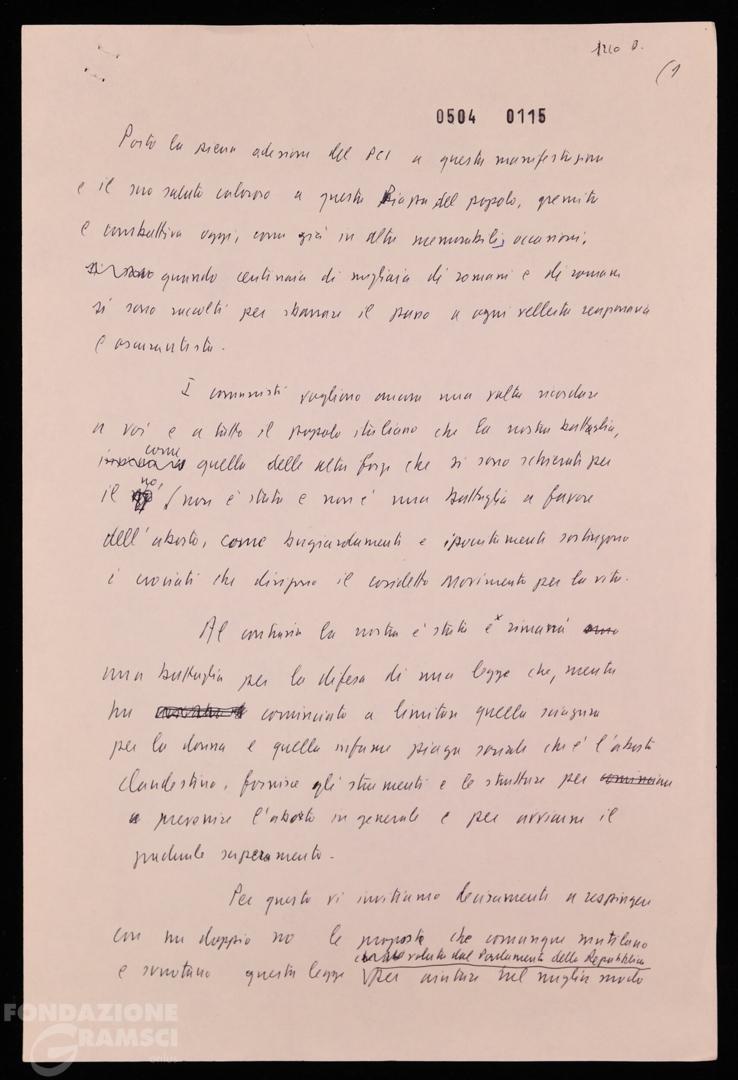 (1
0504 0115
Porto la piena adesione del PCI a questa manifestazione
e il suo saluto caloroso a questa Piazza del popolo, gremita
e combattiva oggi, come già in altre memorabili, occasioni,
quando centinaia di migliaia di romani e di romane
si sono raccolti per sbarrare il passo a ogni velleità reazionaria
e oscurantista.
I comunisti vogliono ancora una volta ricordare
a voi e a tutto il popolo italiano che la nostra battaglia,
come
quella delle altre forze che si sono schierate per
no,
il non è stata e non è una battaglia a favore
dell'aborto, come bugiardamente e ipocritamente sostengono
i crociati che dirigono il cosidetto Movimento per la vita.
Al contrario la nostra è stata e rimarrà
una battaglia per la difesa di una legge che, mentre
ha cominciato a limitare quella sciagura
per la donna e quella infame piaga sociale che è l'aborto
clandestino, fornisce gli strumenti e le strutture per
prevenire l'aborto in generale e per avviarne il
graduale superamento.
Per questo vi invitiamo decisamente a respingere
con un doppio no le proposte che comunque mutilano
votata dal Parlamento della Repubblica
e svuotano questa legge per aiutare nel miglior modo
FONDAZIONE
GRAMSCI
onlus